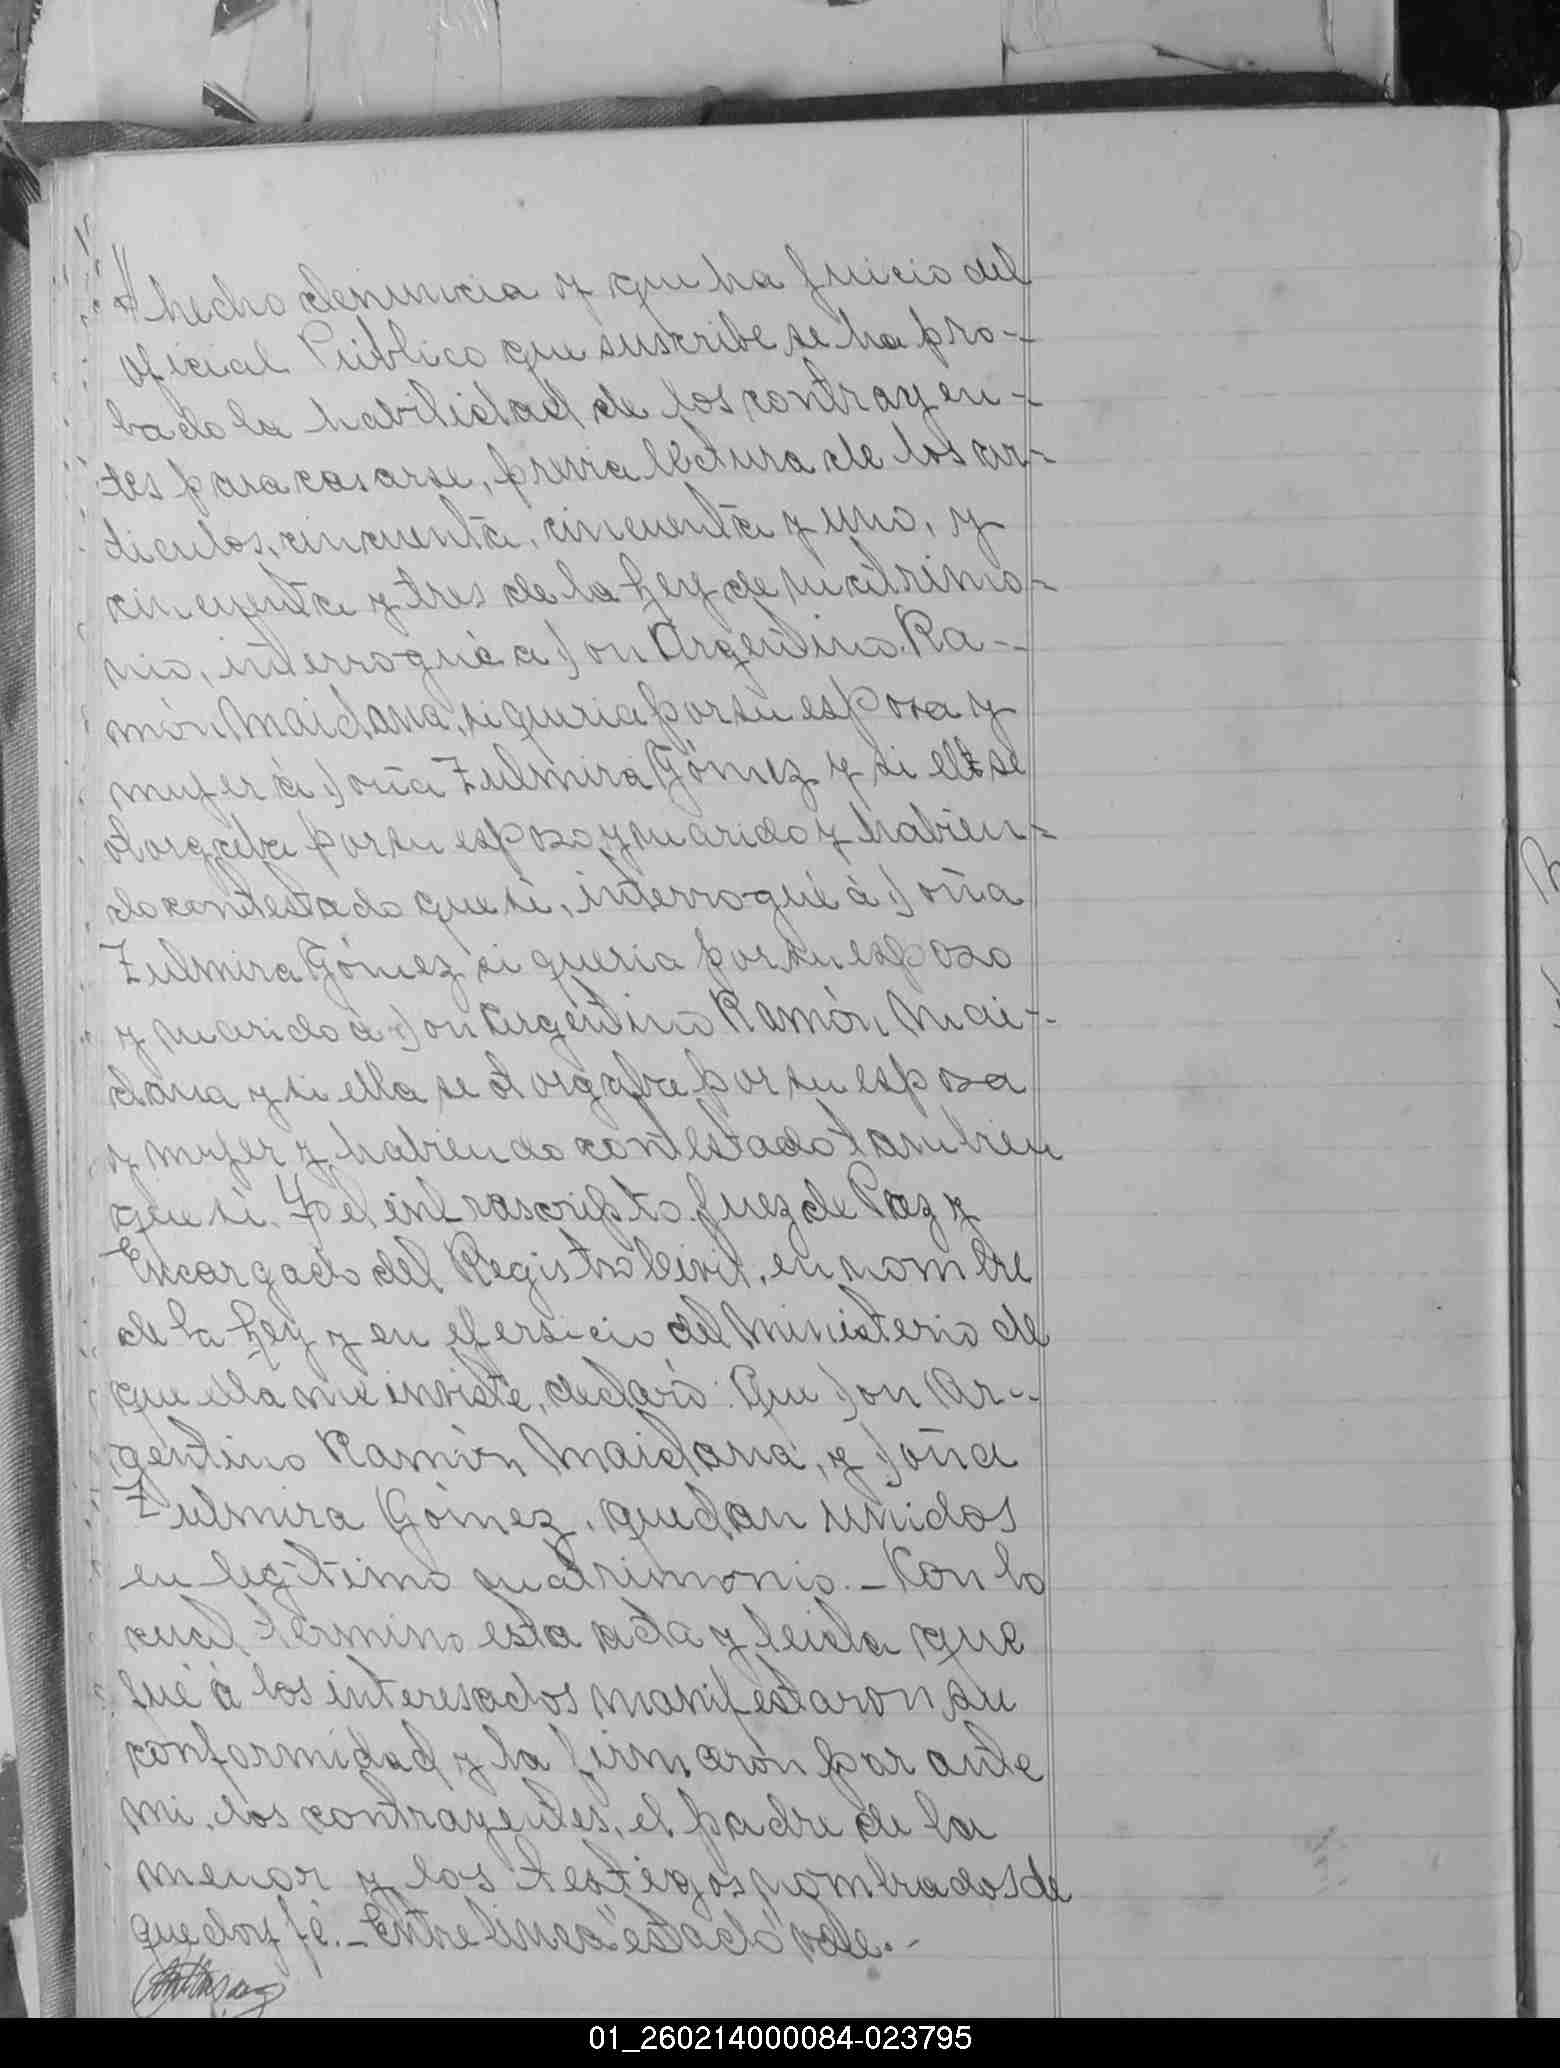 // hecho denuncia y que ha juicio del
oficial Público que suscribe se ha pro-
bado la habilidad de los contrayen-
tes para casarse, previa lectura de los ar-
tículos, cincuenta, cincuenta y uno, y
cincuenta y tres de la Ley de Matrimo-
nio, interrogué a Don Argentino Ra-
món Maidana, si queria por su esposa y
mujer á Doña Zulmira Gómez y si el se
otorgaba por su esposo y marido y habien-
do contestado que si, interrogué á Doña
Zulmira Gómez si queria por su esposo
y marido á Don Argentino Ramón Mai-
dana y si ella se otorgaba por su esposa
y mujer y habiendo contestado tambien
que si. Yo el infrascripto Juez de Paz y
Encargado del Registro Civil, en nombre
de la Ley y en ejersicio del Ministerio de
que ella me inviste, declaró: Que Don Ar-
gentino Ramón Maidana, y Doña
Zulmira Gómez, quedan unidos
en legitimo matrimonio.- Con lo
cual termino esta acta y leida que
fué á los interesados manifestaron su
conformidad y la firmaron por ante
mi, los contrayentes, el padre de la
menor y los testigos nombrados de
que doy fé.- Entre linea "estado" vale.-